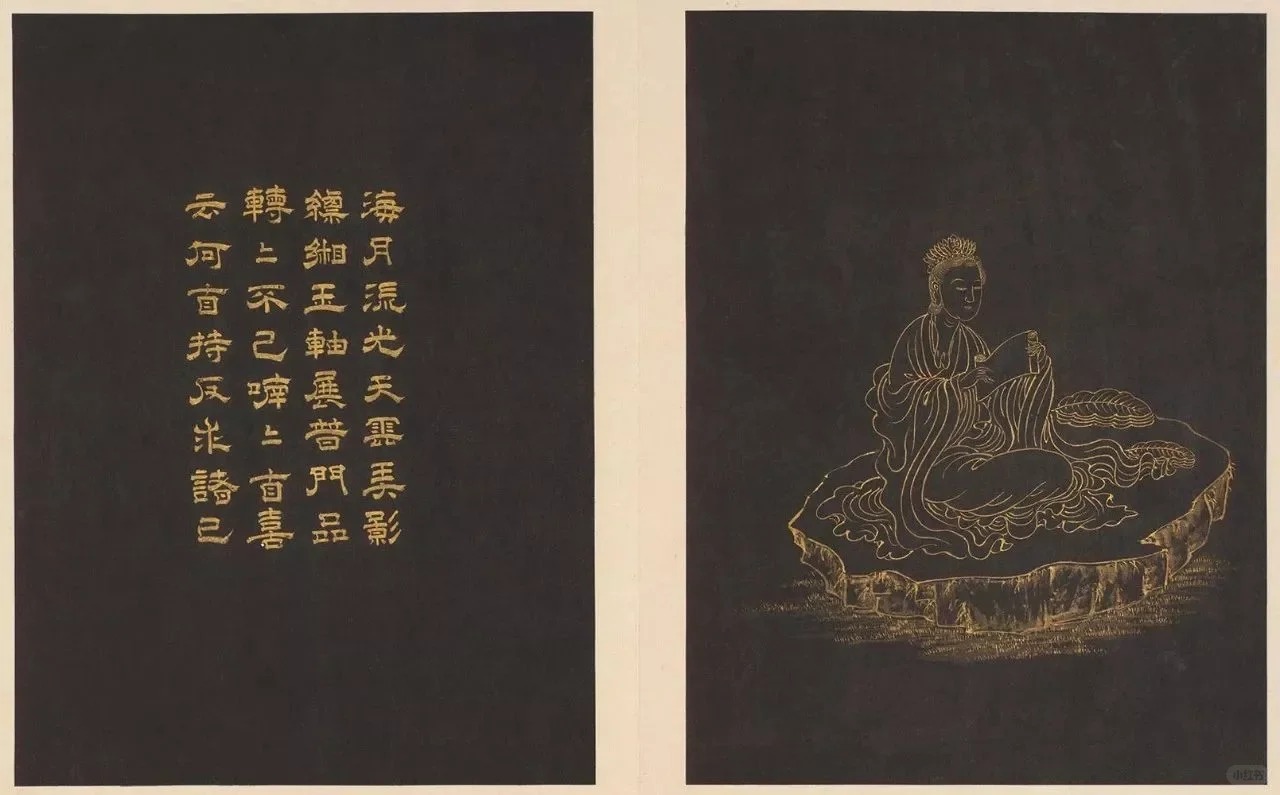 海月流光天雲弄影
縹緗玉軸展普門品
轉〻不已喃〻自喜
云何自持反求諸己
小红书